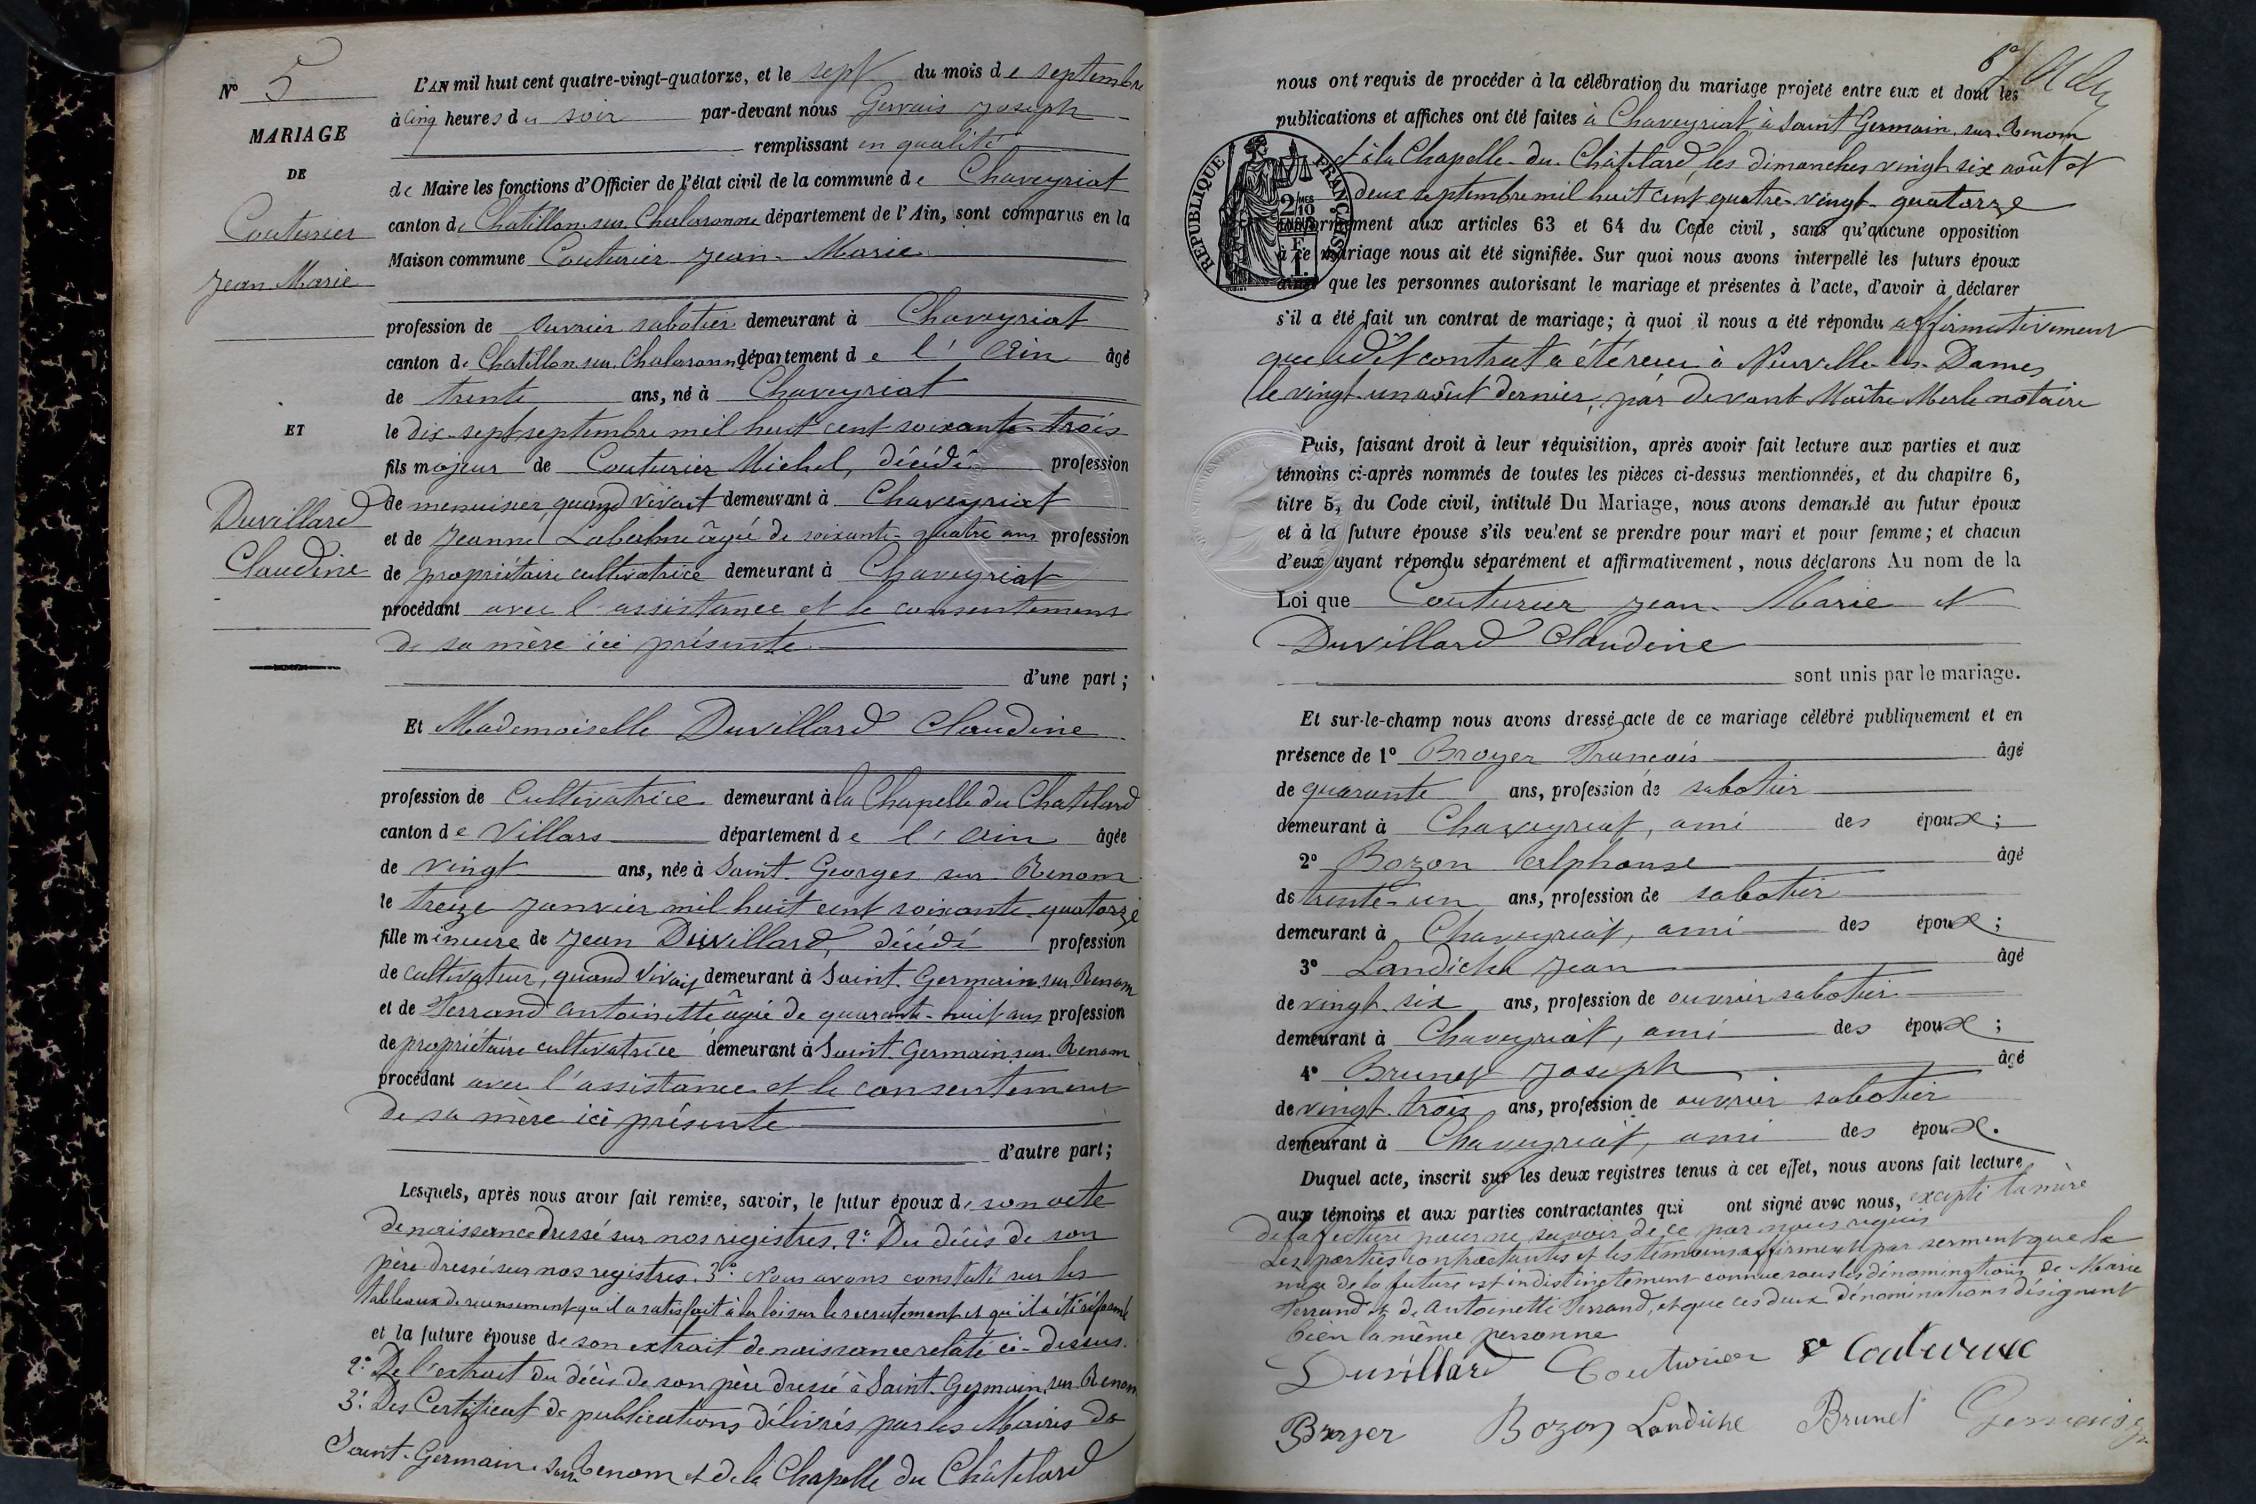 N° 5
MARIAGE
DE
Couturier
Jean Marie
ET
Duvillard
Claudine
L'AN mil huit cent quatre-vingt-quatorze, et le sept du mois de septembre
à cinq heures du soir par-devant nous Gervais Joseph
remplissant en qualité
de Maire les fonctions d'Officier de l'état civil de la commune de Chaveyriat
canton de Chatillon-sur-Chalaronne département de l'Ain, sont comparus en la
Maison commune Couturier Jean-Marie
profession de ouvrier sabotier demeurant à Chaveyriat
canton de Chatillon-sur-Chalaronne département de l'Ain âgé
de trente ans, né à Chaveyriat
le dix-sept septembre mil huit cent soixante-trois
fils majeur de Couturier Michel, décédé profession
de menuisier, quand vivait demeurant à Chaveyriat
et de Jeanne Labalme âgée de soixante-quatre ans profession
de propriétaire cultivatrice demeurant à Chaveyriat
procédant avec l'assistance et le consentement
de sa mère ici présente
d'une part;
Et Mademoiselle Duvillard Claudine
profession de Cultivatrice demeurant à la Chapelle du Chatelard
canton de Villars département de l'Ain âgée
de vingt ans, née à Saint-Georges-sur-Renom
le treize Janvier mil huit cent soixante-quatorze
fille mineure de Jean Duvillard, décédé profession
de cultivateur, quand vivait demeurant à Saint-Germain-sur-Renom
et de Ferrand Antoinette âgée de quarante-huit ans profession
de propriétaire cultivatrice demeurant à Saint-Germain-sur-Renom
procédant avec l'assistance et le consentement
de sa mère ici présente
d'autre part;
Lesquels, après nous avoir fait remise, savoir, le futur époux de son acte
de naissance dressé sur nos registres. 2° Du décès de son
père dressé sur nos registres. 3° Nous avons constaté sur les
tableaux de recensement qu'il a satisfait à la loi sur le recrutement et qu'il a été réformé
et la future épouse de son extrait de naissance relaté ci-dessus.
2° De l'extrait du décès de son père dressé à Saint-Germain-sur-Renom
3° Des Certificat de publications délivrés par les Maires de
Saint-Germain-sur-Renom et de la Chapelle du Châtelard
nous ont requis de procéder à la célébration du mariage projeté entre eux et dont les
publications et affiches ont été faites à Chaveyriat, à Saint Germain-sur-Renom
et à la Chapelle-du-Châtelard, les dimanches vingt six août et
deux septembre mil huit cent quatre-vingt-quatorze
conformément aux articles 63 et 64 du Code civil, sans qu'aucune opposition
à ce mariage nous ait été signifiée. Sur quoi nous avons interpellé les futurs époux
ainsi que les personnes autorisant le mariage et présentes à l'acte, d'avoir à déclarer
s'il a été fait un contrat de mariage; à quoi il nous a été répondu affirmativement
que ledit contrat a été reçu à Neuville-les-Dames
le vingt-un août dernier, par devant Maître Merle notaire
RÉPUBLIQUE FRANÇAISE
2/10 MES
EN SUS
1 F.
Puis, faisant droit à leur réquisition, après avoir fait lecture aux parties et aux
témoins ci-après nommés de toutes les pièces ci-dessus mentionnées, et du chapitre 6,
titre 5, du Code civil, intitulé Du Mariage, nous avons demandé au futur époux
et à la future épouse s'ils veulent se prendre pour mari et pour femme; et chacun
d'eux ayant répondu séparément et affirmativement, nous déclarons Au nom de la
Loi que Couturier Jean-Marie et
Duvillard Claudine
sont unis par le mariage.
Et sur-le-champ nous avons dressé acte de ce mariage célébré publiquement et en
présence de 1° Broyer François âgé
de quarante ans, profession de sabotier
demeurant à Chaveyriat, ami des époux;
2° Bozon Alphonse âgé
de trente-un ans, profession de sabotier
demeurant à Chaveyriat, ami des époux;
3° Landiche Jean âgé
de vingt-six ans, profession de ouvrier sabotier
demeurant à Chaveyriat, ami des époux;
4° Brunet Joseph âgé
de vingt-trois ans, profession de ouvrier sabotier
demeurant à Chaveyriat, ami des époux.
Duquel acte, inscrit sur les deux registres tenus à cet effet, nous avons fait lecture
aux témoins et aux parties contractantes qui ont signé avec nous, excepté la mère
de la future pour ne savoir de ce par nous requis
Les parties contractantes et les témoins affirment par serment que la
mère de la future est indistinctement connue sous les dénominations de Marie
Ferrand et de Antoinette Ferrand, et que ces deux dénominations désignent
bien la même personne
Duvillard Couturier Couturier
Broyer Bozon Landiche Brunet Gervais